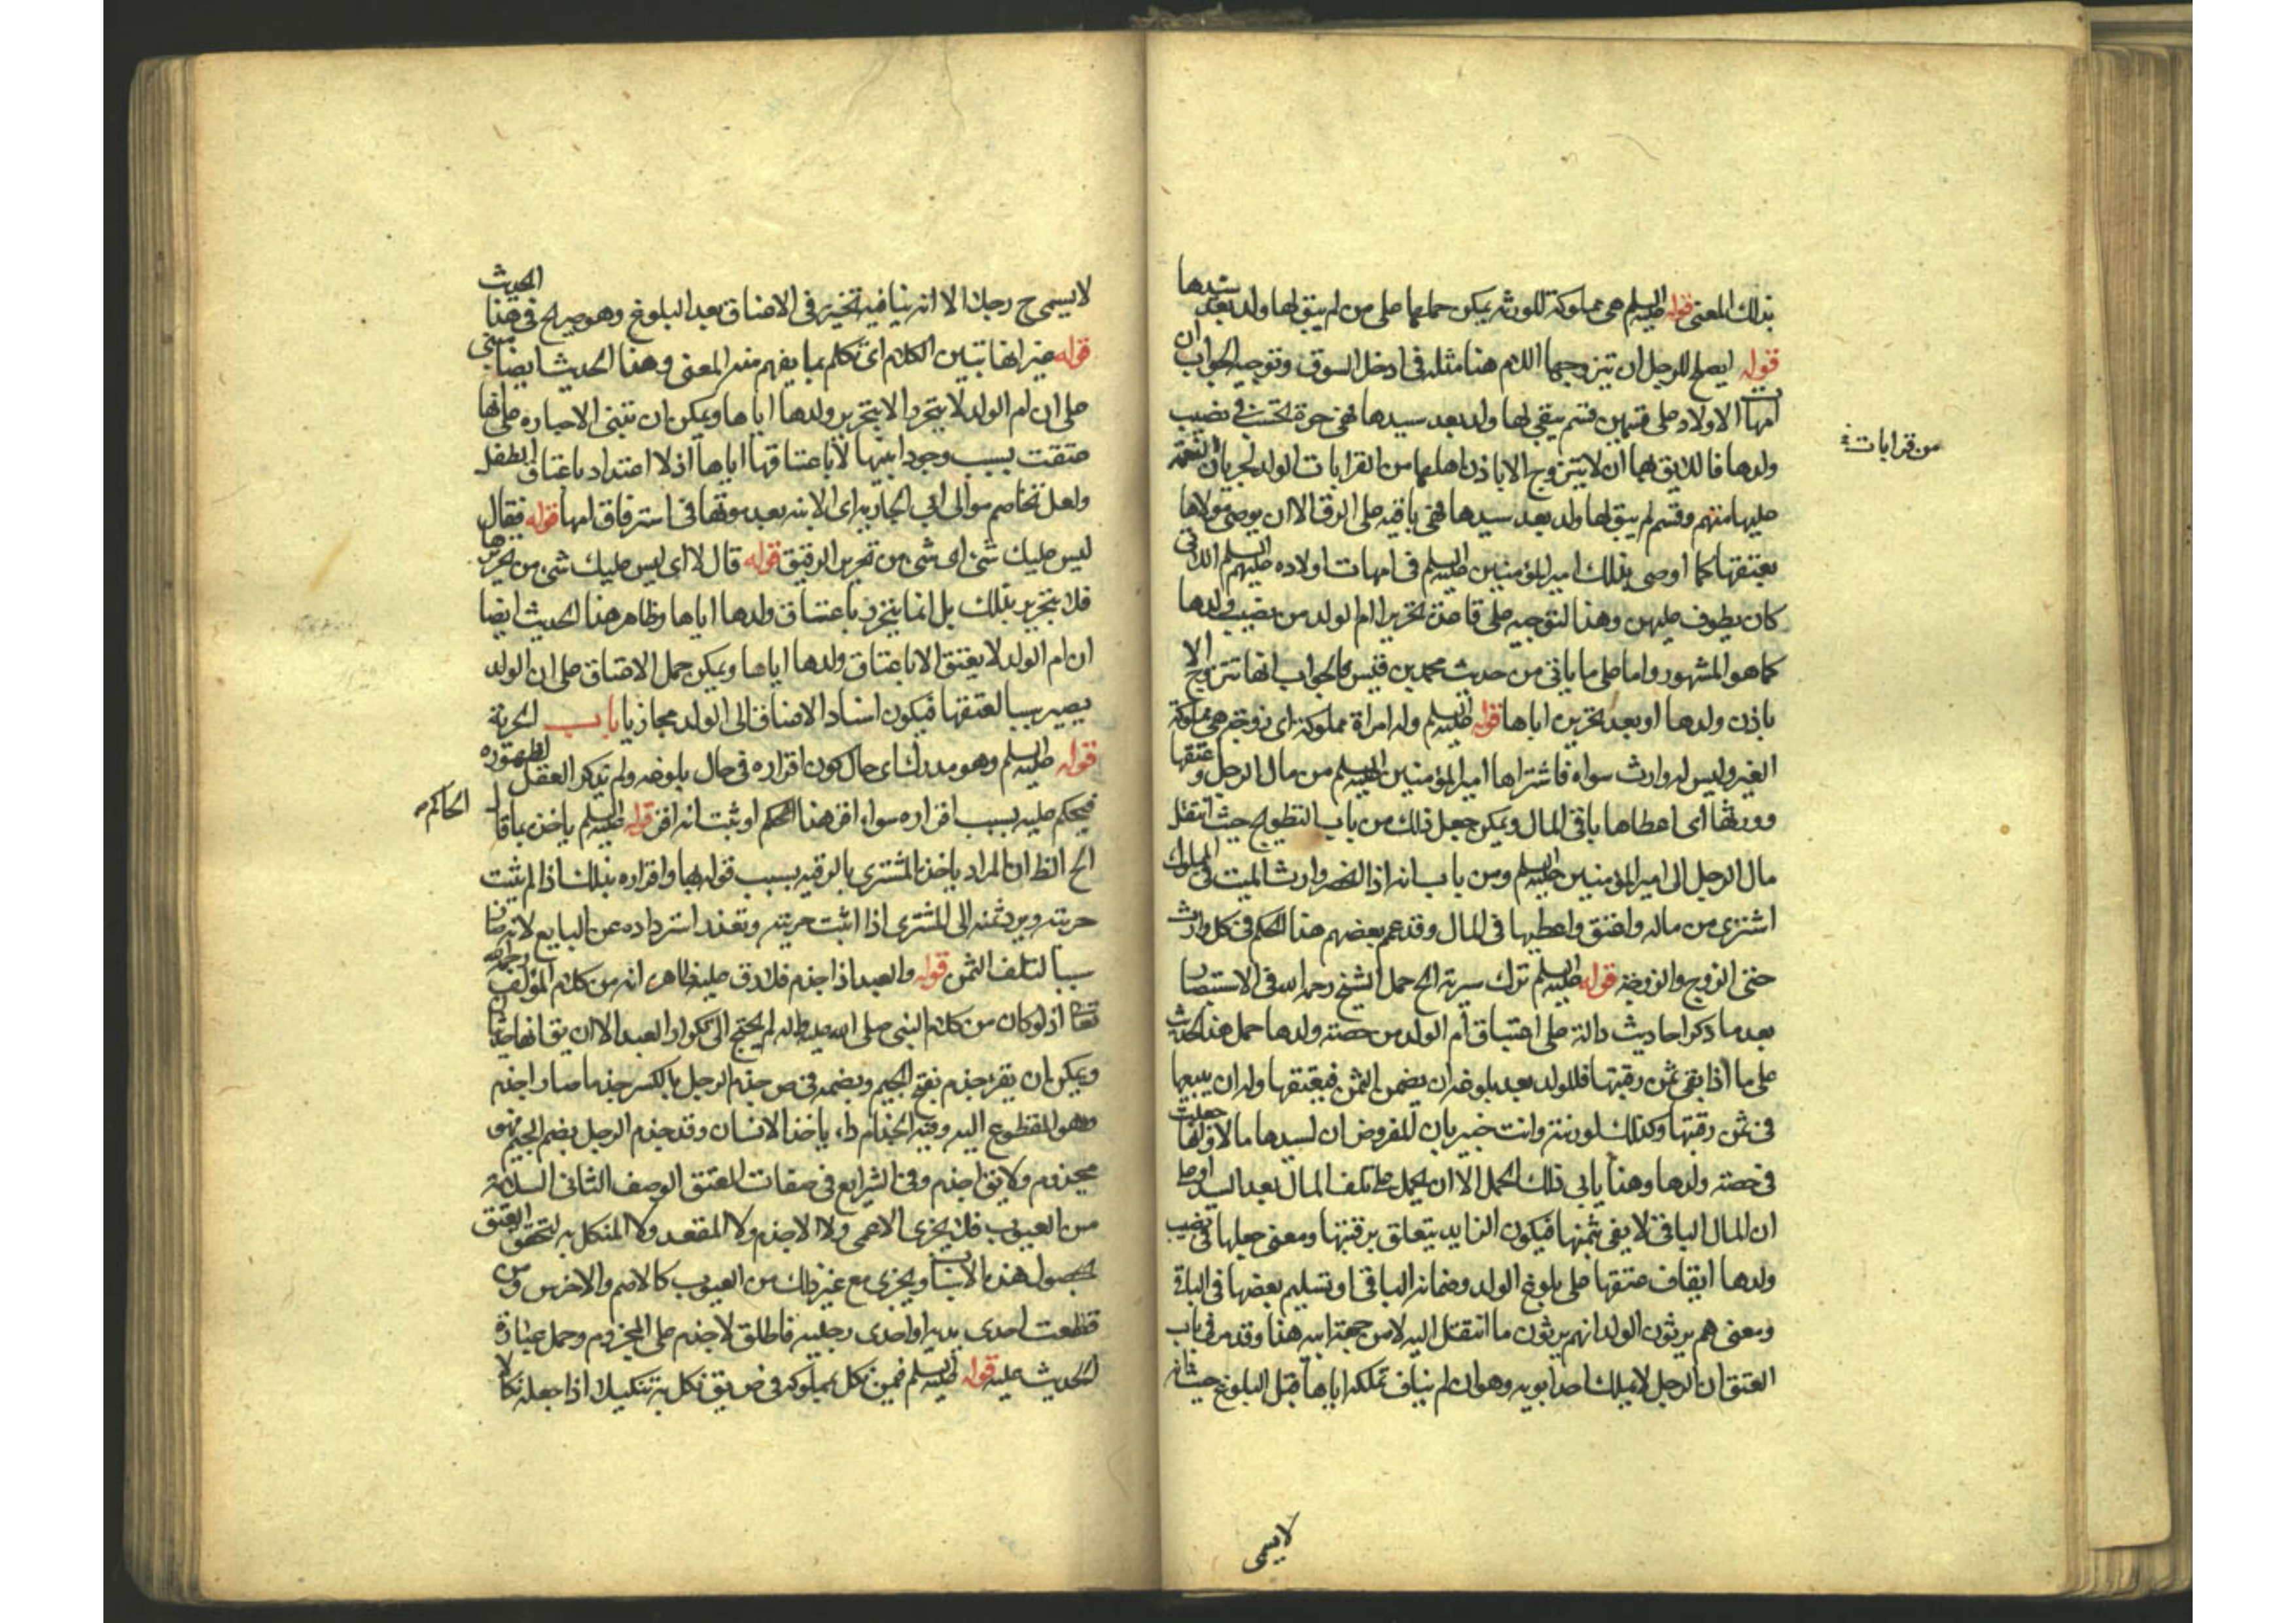 بذلك المعنى قوله عليه السلم هى مملوكة للورثة يمكن حملها على من لم يبق لها ولد بعد سيدها
قوله ايصلح للرجل ان يتزوجها اللام هنا مثله فى ادخل السوق وتوجيه الجواب ان
امهات الاولاد على قسمين قسم يبقى لها ولد بعد سيدها فهى حرة تحتسب فى نصيب
ولدها فاللايق بها ان لا يتزوج الا باذن اهلها من القرابات الولد لجريان النعمة
من قرابات
عليها منهم وقسم لم يبق لها ولد بعد سيدها فهى باقية على الرق الا ان يوصى مولاها
بعتقها كما اوصى بذلك امير المؤمنين عليه السلم فى امهات اولاده عليهم السلم اللاتى
كان يطوف عليهن وهذا التوجيه على قاعدة تحرير ام الولد من نصيب ولدها
كما هو المشهور واما على ما ياتى من حديث محمد بن قيس فالجواب انها تتزوج الا
باذن ولدها او بعد تحريره اياها قوله عليه السلم وله امراة مملوكة اى زوجة هى مملوكة
الغير وليس له وارث سواه فاشتراها امير المؤمنين عليه السلم من مال الرجل وعتقها
وورثها اى اعطاها باقى المال ويمكن جعل ذلك من باب التطوع حيث انتقل
مال الرجل الى امير المؤمنين عليه السلم ومن باب انه اذا انحصر وارث الميت فى المملوك
اشترى من ماله واعتق واعطيها فى المال وقد عم بعضهم هذا الحكم فى كل وارث
حتى الزوج والزوجة قوله عليه السلم ترك سرية الخ حمل الشيخ رحمه الله فى الاستبصار
بعد ما ذكر احاديث دالة على اعتاق ام الولد من حصته ولدها حمل هذا الحديث
على ما اذا بقى ثمن رقبتها فللولد بعد بلوغه ان يضمن الثمن فيعتقها وله ان يبيعها
فى ثمن رقبتها وكذلك لورثته وانت خبير بان المفروض ان لسيدها مالا ولها جعلت
فى حصته ولدها وهذا يابى ذلك الحمل الا ان يحمل على تلف المال بعد السيد او على
ان المال الباقى لا يفى بثمنها فيكون الزايد يتعلق برقبتها ومعنى جعلها فى نصيب
ولدها ايقاف عتقها على بلوغ الولد وضمانه الباقى او تسليم بعضها فى الباقى
ومعنى هم يرثون الولد انهم يرثون ما انتقل اليه لا من جهة ابيه هذا وقد مر فى باب
العتق ان الرجل لا يملك احد ابويه وهو ان لم يناف تملكه اياها قبل البلوغ حيث انه
لا يسمى
لا يسمى ح رجلا الا انه ينافيه تخييره فى الاعتاق بعد البلوغ وهو صريح فى هذا الحديث
قوله غير انها تبين الكلام اى تكلم بما يفهم منه المعنى وهذا الحديث ايضا مبنى
على ان ام الولد لا يتحرر الا بتحرير ولدها اياها ويمكن ان تبتنى الاحباره على انها
عتقت بسبب وجود ابنها لا باعتاقها اياها اذ لا اعتداد باعتاق الطفل
ولعل تخاصم موالى ابى الجارية اى الابنة بعد موتها فى استرقاق امها قوله فقال
ليس عليك شئ اى شئ من تحرير الرقيق قوله قال لا اى ليس عليك شئ من تحريرها
فلا يتحرر بذلك بل انما يتحرر باعتاق ولدها اياها وظاهر هذا الحديث ايضا
ان ام الولد لا يعتق الا باعتاق ولدها اياها ويمكن حمل الاعتاق على ان الولد
يصير سببا لعتقها فيكون اسناد الاعتاق الى الولد مجازيا باب الحرية
قوله عليه السلم وهو مدرك اى حال كون اقراره فى حال بلوغه ولم يذكر العقل لظهوره
فيحكم عليه بسبب اقراره سواء اقر هذا الحكم او ثبت انه اقر قوله عليه السلم ياخذ بما قال
الحاكم
الخ الظ ان المراد ياخذ المشترى بالرقية بسبب قولها واقراره بذلك اذا لم يثبت
حريته ويرد ثمنه الى المشترى اذا اثبت حريته وتعذر استرداده عن البايع لانه صار
سببا لتلف الثمن قوله والعبد اذا جذم فلا رق عليه ظاهره انه من كلام المؤلف رحمه الله
تعالى اذ لو كان من كلام النبى صلى الله عليه واله لم يحتج الى تكرار العبد الا ان يق انها حديثان
ويمكن ان يقر جذم بفتح الجيم وبضمه فى ص جذم الرجل بالكسر جذما صار اجذم
وهو المقطوع اليد وفيه الجذام داء ياخذ الانسان وقد جذم الرجل بضم الجيم فهو
مجذوم ولا يق اجذم وفى الشرايع فى صفات المعتق الوصف الثانى السلامة
من العيوب فلا يجزى الاعمى ولا الاجذم ولا المقعد ولا المنكل به لتحقق العتق
بحصول هذه الاسباب ويجزى مع غير ذلك من العيوب كالاصم والاخرس ومن
قطعت احدى يديه او احدى رجليه فاطلق لاجذم على المجزوم وحمل عبارة
الحديث عليه قوله عليه السلم فيمن نكل بمملوكه فى ص يق نكل به تنكيلا اذا جعله نكالا